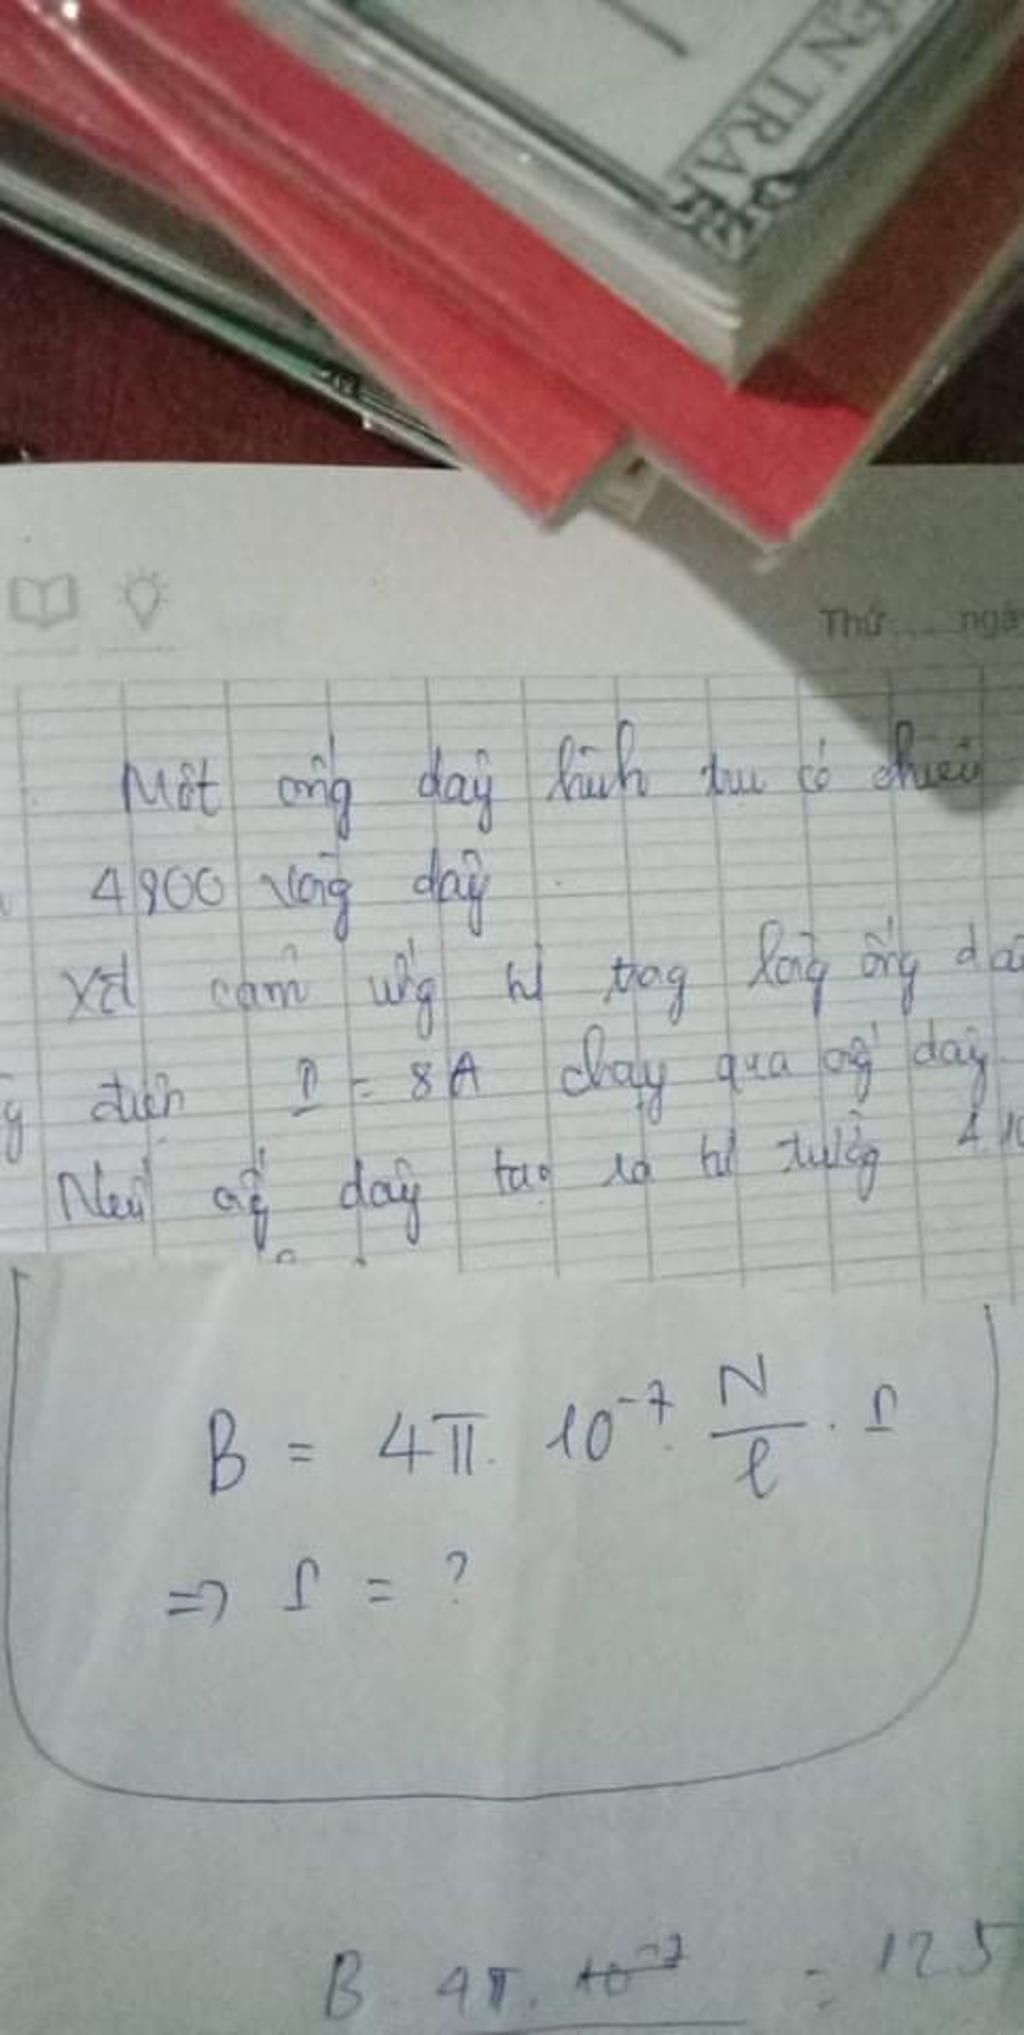 ẾN TRA
Thứ ngà
Một ống dây hình trụ có chiều
4900 vòng dây
Xđ cảm ứg từ trog lòg ốg dâ
g điện I = 8A chạy qua ốg dây
Nếu ốg dây tạo ra từ trườg 4.10
B = 4π. 10⁻⁷. N/l . I
=> I = ?
B 4π. 10⁻⁷ = 125